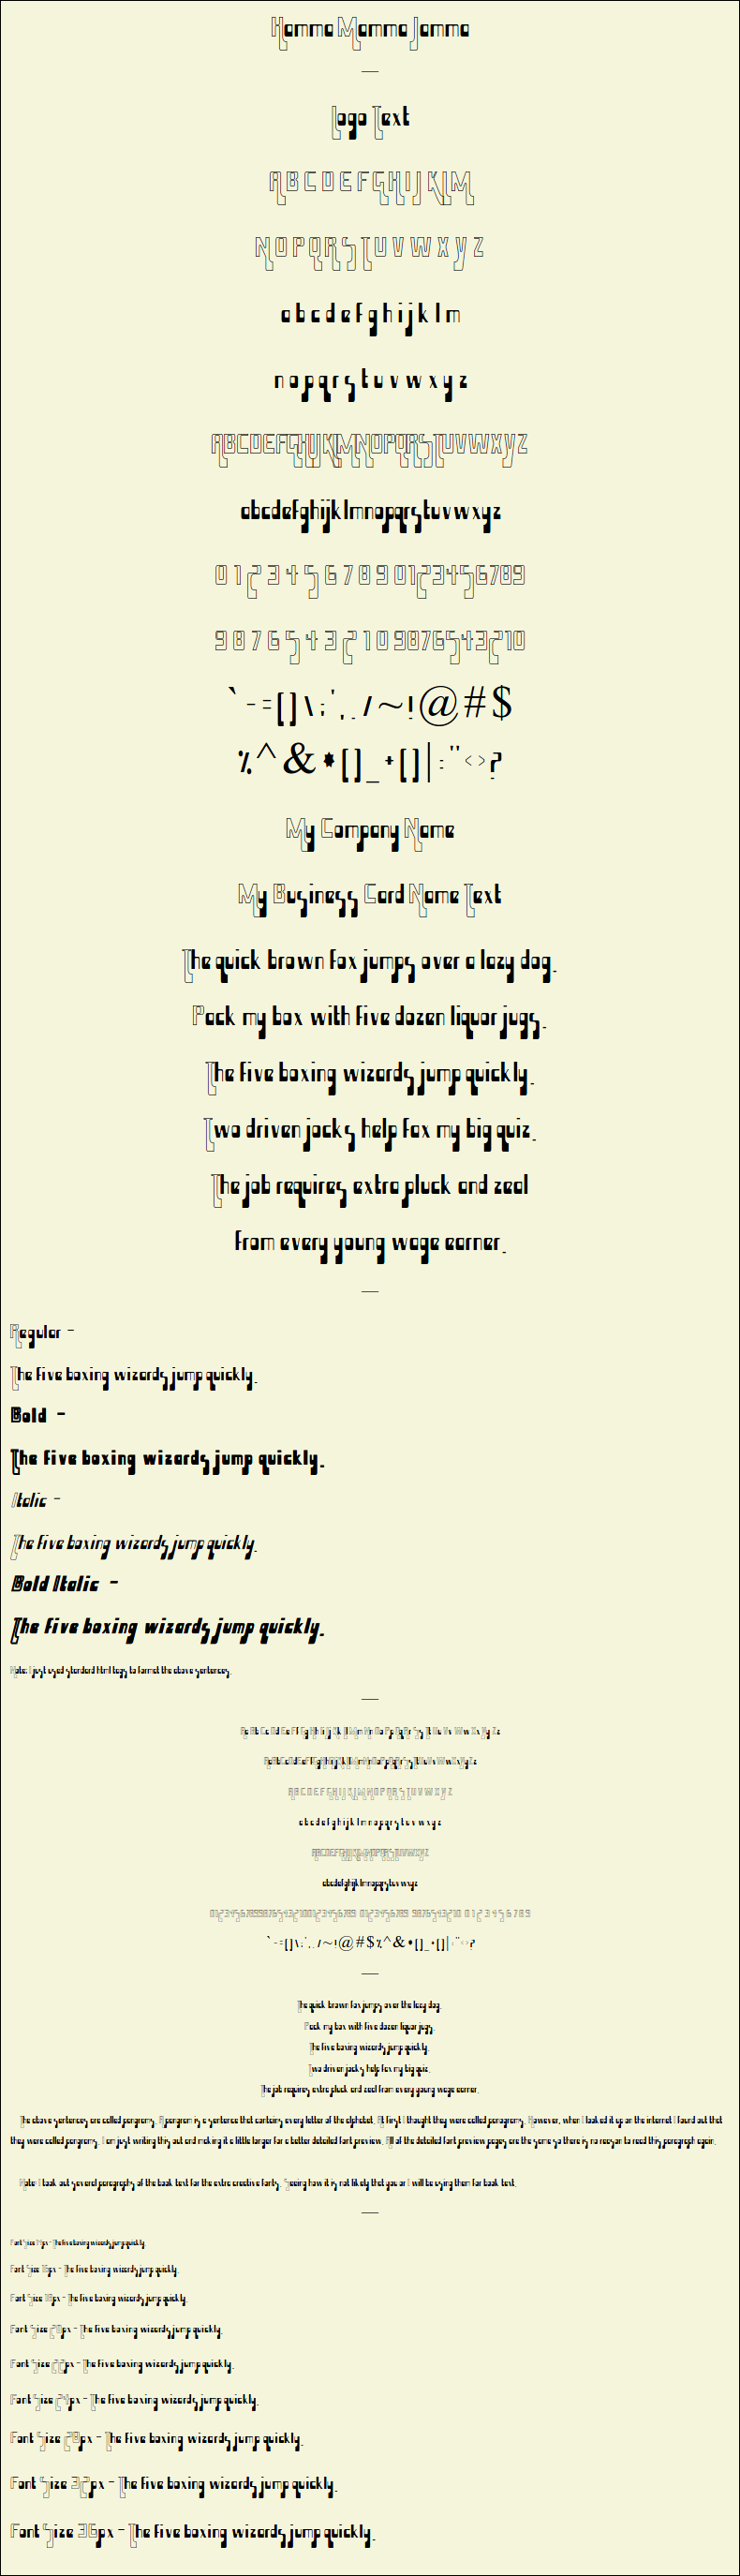 Hamma Mamma Jamma
Logo Text
A B C D E F G H I J K L M
N O P Q R S T U V W X Y Z
a b c d e f g h i j k l m
n o p q r s t u v w x y z
ABCDEFGHIJKLMNOPQRSTUVWXYZ
abcdefghijklmnopqrstuvwxyz
0 1 2 3 4 5 6 7 8 9 0123456789
9 8 7 6 5 4 3 2 1 0 9876543210
` - = [ ] \ ; ' , . / ~ ! @ # $
% ^ & * [ ] _ + [ ] | : " < > ?
My Company Name
My Business Card Name Text
The quick brown fox jumps over a lazy dog.
Pack my box with five dozen liquor jugs.
The five boxing wizards jump quickly.
Two driven jocks help fax my big quiz.
The job requires extra pluck and zeal
from every young wage earner.
Regular -
The five boxing wizards jump quickly.
Bold -
The five boxing wizards jump quickly.
Italic -
The five boxing wizards jump quickly.
Bold Italic -
The five boxing wizards jump quickly.
Note: I just used standard html tags to format the above sentences.
Aa Bb Cc Dd Ee Ff Gg Hh Ii Jj Kk Ll Mm Nn Oo Pp Qq Rr Ss Tt Uu Vv Ww Xx Yy Zz
AaBbCcDdEeFfGgHhIiJjKkLlMmNnOoPpQqRrSsTtUuVvWwXxYyZz
A B C D E F G H I J K L M N O P Q R S T U V W X Y Z
a b c d e f g h i j k l m n o p q r s t u v w x y z
ABCDEFGHIJKLMNOPQRSTUVWXYZ
abcdefghijklmnopqrstuvwxyz
012345678998765432100123456789 0123456789 9876543210 0 1 2 3 4 5 6 7 8 9
` - = [ ] \ ; ' , . / ~ ! @ # $ % ^ & * [ ] _ + [ ] | : " < > ?
The quick brown fox jumps over the lazy dog.
Pack my box with five dozen liquor jugs.
The five boxing wizards jump quickly.
Two driven jocks help fax my big quiz.
The job requires extra pluck and zeal from every young wage earner.
The above sentences are called pangrams. A pangram is a sentence that contains every letter of the alphabet. At first I thought they were called paragrams. However, when I looked it up on the internet I found out that
they were called pangrams. I am just writing this out and making it a little longer for a better detailed font preview. All of the detailed font preview pages are the same so there is no reason to read this paragraph again.
Note: I took out several paragraphs of the book text for the extra creative fonts. Seeing how it is not likely that you or I will be using them for book text.
Font Size 14px - The five boxing wizards jump quickly.
Font Size 16px - The five boxing wizards jump quickly.
Font Size 18px - The five boxing wizards jump quickly.
Font Size 20px - The five boxing wizards jump quickly.
Font Size 22px - The five boxing wizards jump quickly.
Font Size 24px - The five boxing wizards jump quickly.
Font Size 28px - The five boxing wizards jump quickly.
Font Size 32px - The five boxing wizards jump quickly.
Font Size 36px - The five boxing wizards jump quickly.